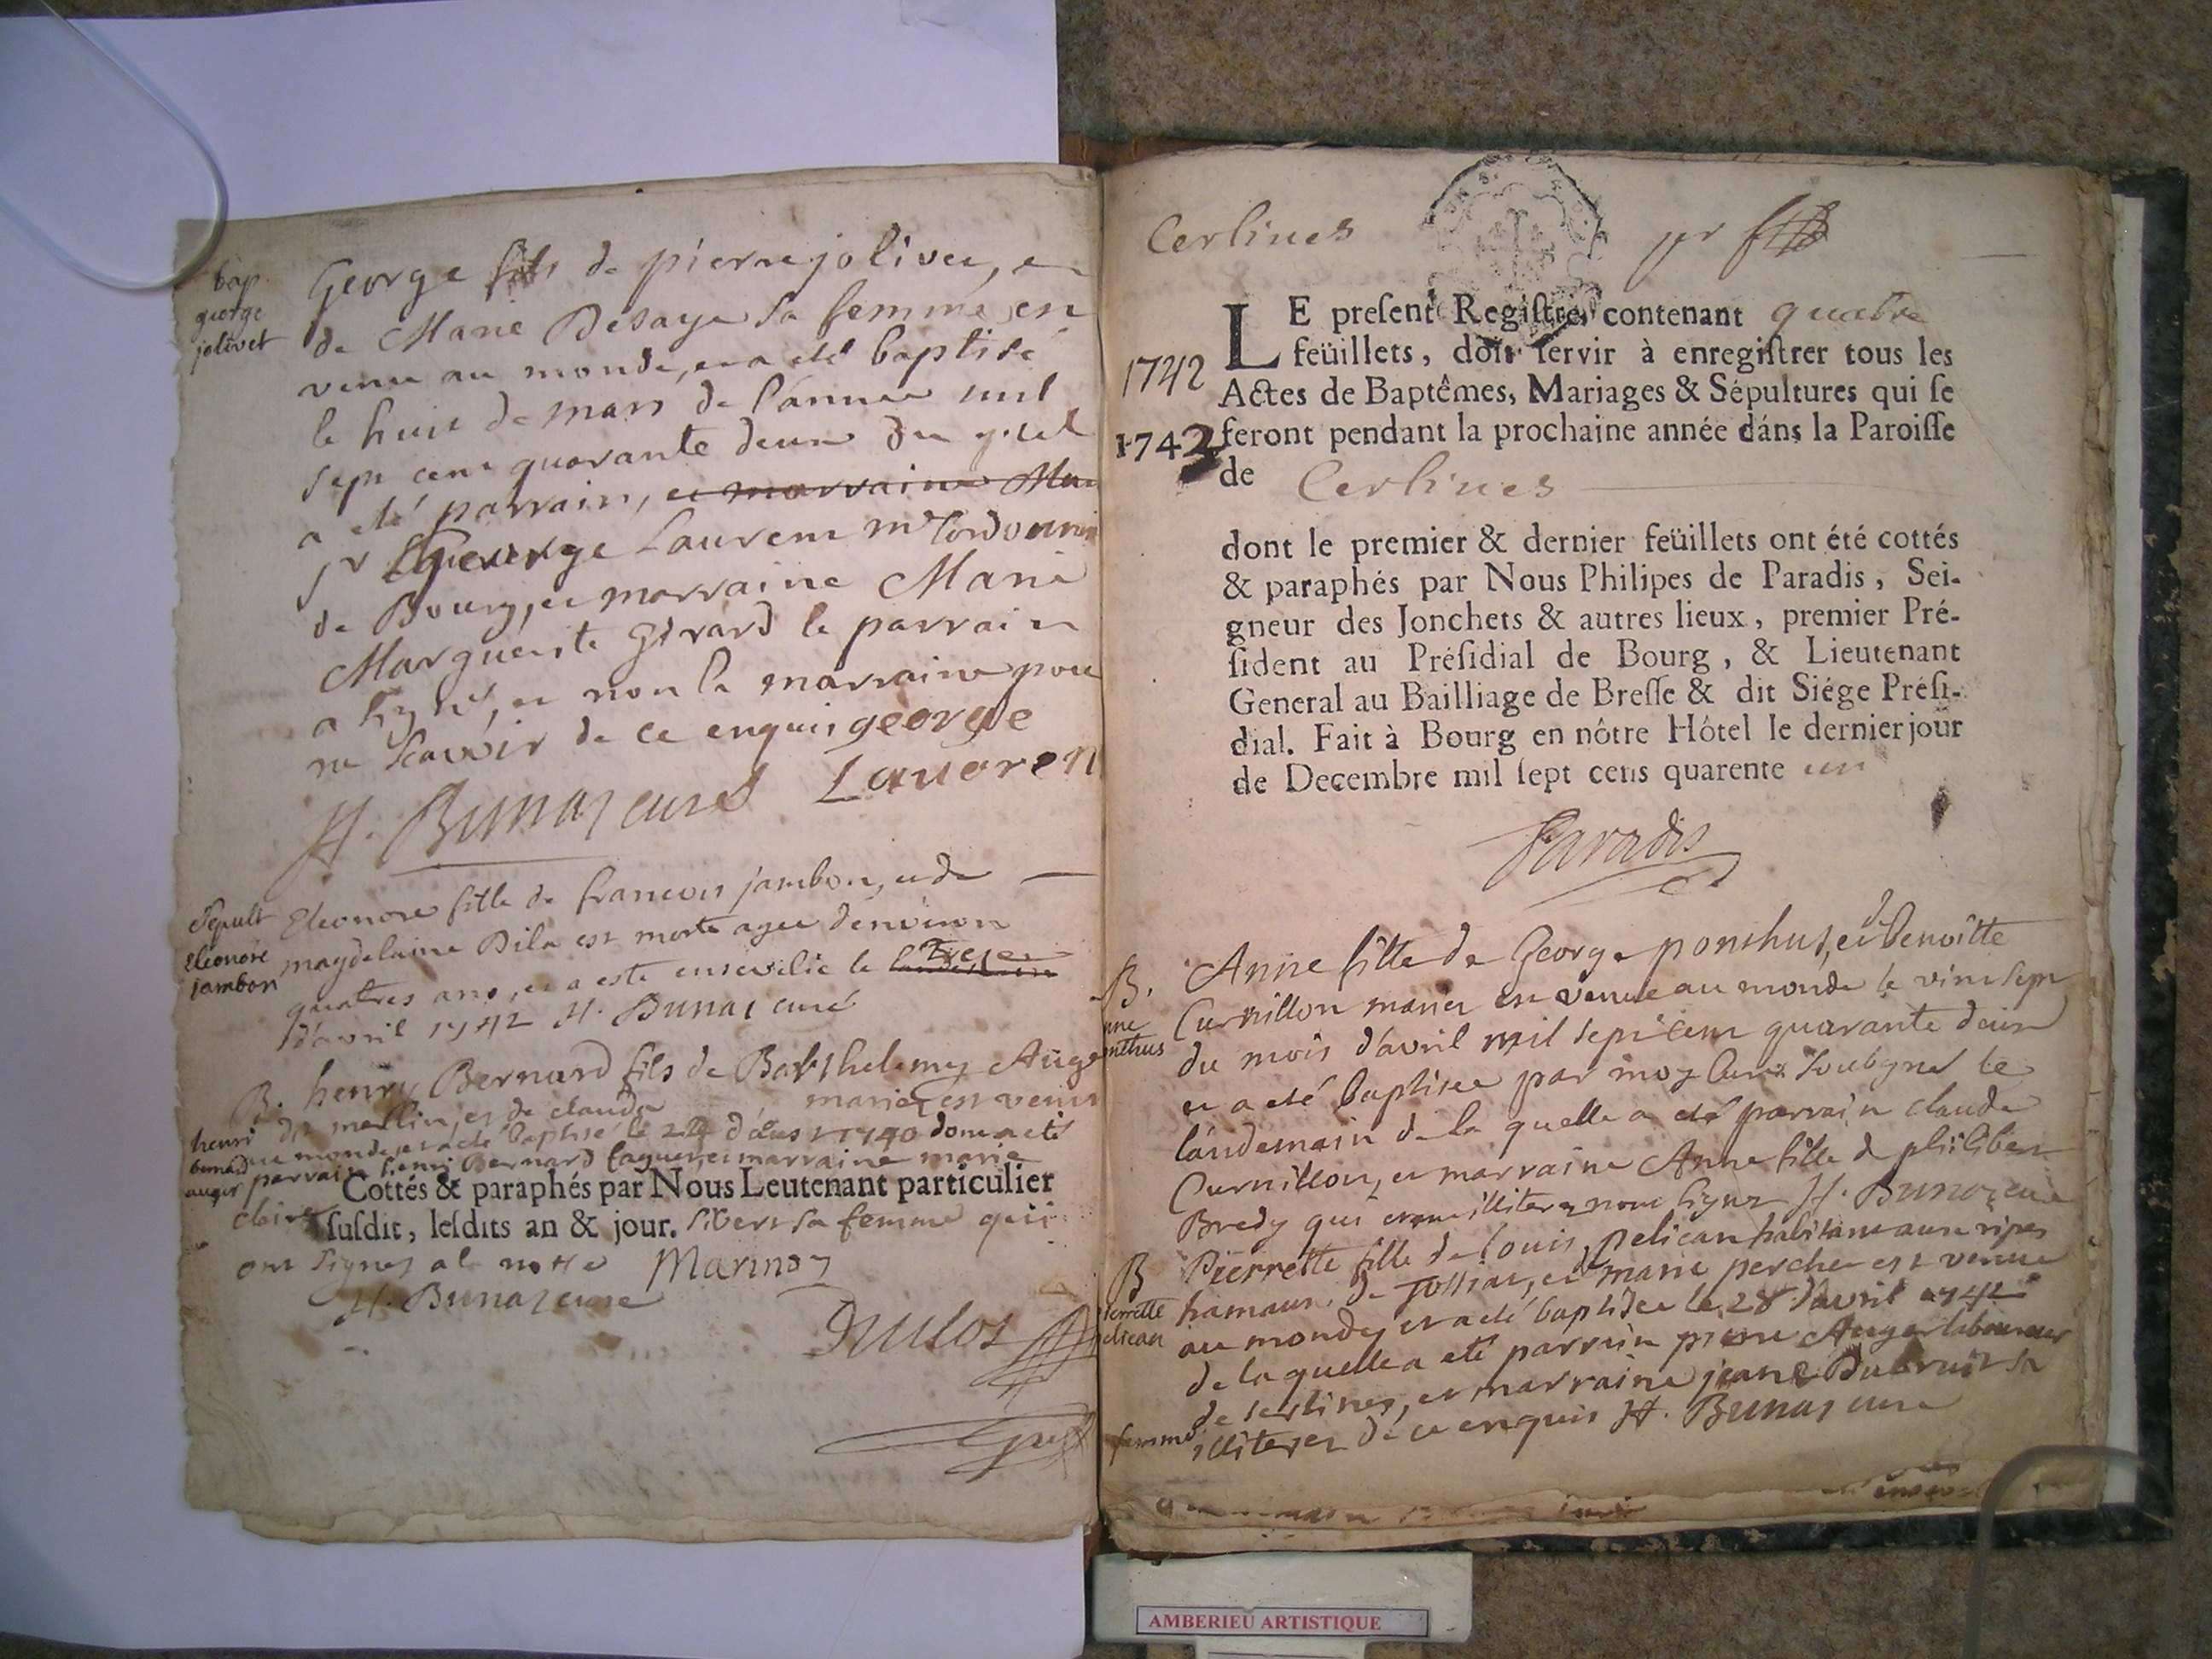 bap.
george
jolivet
George fils de pierre jolivet, et
de Marie Desaye sa femme est
venu au monde, et a eté baptisé
le huit de mars de l'annee mil
sept cent quarante deux du quel
a eté parrain, et marraine Mar
sr George Laurent mr Cordonnier
de Bourg, et marraine Marie
Marguerite Girard le parrain
a signé, et non la marraine pour
ne scavoir de ce enquis george
H. Bunaz curé Lauoren
Sepult
eleonore
jambon
Eleonore fille de francois jambon, et de
magdelaine Dila est morte agee d'environ
quatres ans, et a este ensevelie le treize
d'avril 1742 H. Bunaz curé
B.
henri
bernard
auger
henry Bernard fils de Barthelemy Auger
dit merlin, et de claude mariez est venu
au monde, et a eté baptisé le d'aust 1740 dont a eté
parrain henri Bernard et marraine marie
claire sibert sa femme qui
Cottés & paraphés par Nous Leutenant particulier
susdit, lesdits an & jour.
ont signez a la notte Marinoz
H. Bunaz cure
Duclos
Cerlines
pr
1742
1742
LE present Registre, contenant quatre
feüillets, doit servir à enregistrer tous les
Actes de Baptêmes, Mariages & Sépultures qui se
feront pendant la prochaine année dáns la Paroisse
de Cerlines
dont le premier & dernier feüillets ont été cottés
& paraphés par Nous Philipes de Paradis, Sei-
gneur des Jonchets & autres lieux, premier Pré-
sident au Présidial de Bourg, & Lieutenant
General au Bailliage de Bresse & dit Siége Présî-
dial. Fait à Bourg en nôtre Hôtel le dernier jour
de Decembre mil sept cens quarente un
Paradis
B.
nne
nthus
Anne fille de George ponthus, et de benoitte
Curnillon mariez est venue au monde le vint sept
du mois d'avril mil sept cent quarante deux
et a eté baptisee par moy curé soubsigné le
landemain de la quelle a eté parrain claude
Curnillon, et marraine Anne fille de philibert
Bredy qui illiterez nont signez H. Bunaz curé
B
ierrette
elican
Pierrette fille de louis pelican habitant aux ripes
hameaux de Jossiat, et de marie percher est venue
au monde, et a eté baptisee le 28 d'avril 1742
de laquelle a eté parrain pierre Auger laboureur
de serlines, et marraine jeane Dubruit sa
femme illiterez de ce enquis H. Bunaz cure
AMBERIEU ARTISTIQUE